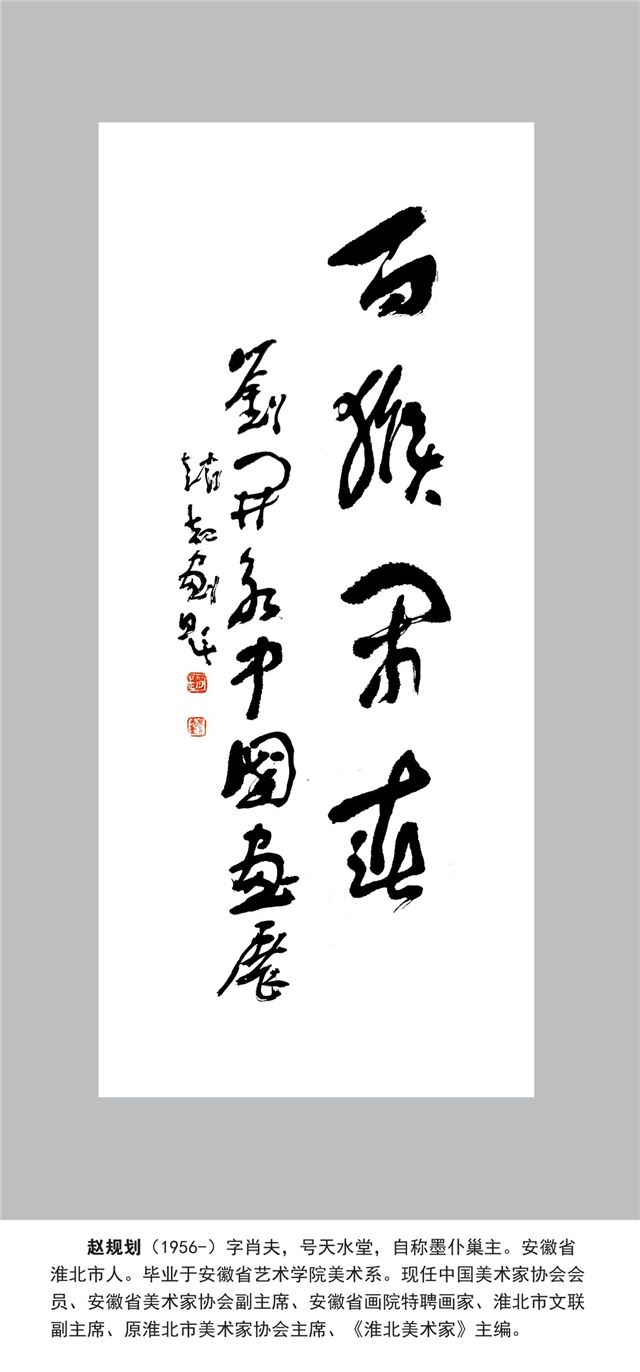 百猴闹春
劉開永中國畫展
趙規劃題
赵规划（1956-）字肖夫，号天水堂，自称墨仆巢主。安徽省
淮北市人。毕业于安徽省艺术学院美术系。现任中国美术家协会会
员、安徽省美术家协会副主席、安徽省画院特聘画家、淮北市文联
副主席、原淮北市美术家协会主席、《淮北美术家》主编。